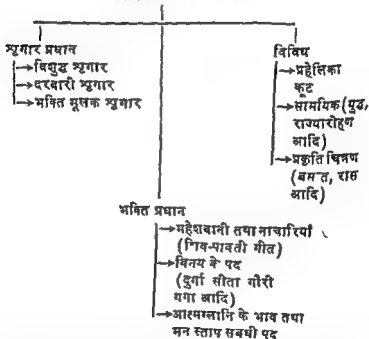 शृगार प्रधान
→विशुद्ध शृगार
→दरबारी शृगार
→भक्ति मूलक शृगार
विविध
→प्रहेलिका
कूट
→सामयिक (युद्ध,
राज्यारोहण
आदि)
→प्रकृति चित्रण
(बसत, रास
आदि)
भक्ति प्रधान
→महेशबानी तथा नाचारियाँ
(शिव-पावती गीत)
→विनय के पद
(दुर्गा सीता गौरी
गगा आदि)
→आत्मग्लानि के भाव तथा
मन स्ताप सबधी पद